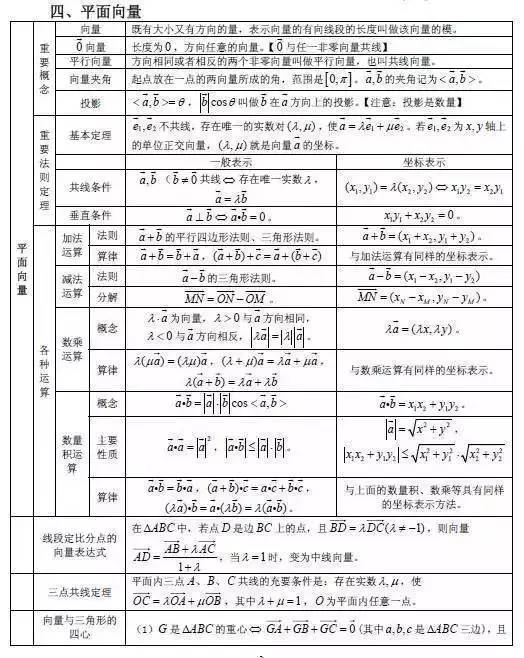 四、平面向量
平面向量
重要概念
向量 既有大小又有方向的量，表示向量的有向线段的长度叫做该向量的模。
0⃗向量 长度为0，方向任意的向量。【0⃗与任一非零向量共线】
平行向量 方向相同或者相反的两个非零向量叫做平行向量，也叫共线向量。
向量夹角 起点放在一点的两向量所成的角，范围是[0,π]。a⃗,b⃗的夹角记为<a⃗,b⃗>。
投影 <a⃗,b⃗>=θ，|b⃗|cosθ叫做b⃗在a⃗方向上的投影。【注意：投影是数量】
重要法则定理
基本定理 e⃗₁,e⃗₂不共线，存在唯一的实数对(λ,μ)，使a⃗=λe⃗₁+μe⃗₂。若e⃗₁,e⃗₂为x,y轴上
的单位正交向量，(λ,μ)就是向量a⃗的坐标。
一般表示 坐标表示
共线条件 a⃗,b⃗（b⃗≠0⃗共线⇔存在唯一实数λ，
a⃗=λb⃗
(x₁,y₁)=λ(x₂,y₂)⇔x₁y₂=x₂y₁
垂直条件 a⃗⊥b⃗⇔a⃗•b⃗=0。 x₁y₁+x₂y₂=0。
各种运算
加法运算
法则 a⃗+b⃗的平行四边形法则、三角形法则。 a⃗+b⃗=(x₁+x₂,y₁+y₂)。
算律 a⃗+b⃗=b⃗+a⃗，(a⃗+b⃗)+c⃗=a⃗+(b⃗+c⃗) 与加法运算有同样的坐标表示。
减法运算
法则 a⃗-b⃗的三角形法则。 a⃗-b⃗=(x₁-x₂,y₁-y₂)
分解 MN⃗=ON⃗-OM⃗。 MN⃗=(x_N-x_M,y_N-y_M)。
数乘运算
概念 λ·a⃗为向量，λ>0与a⃗方向相同，
λ<0与a⃗方向相反，|λa⃗|=|λ||a⃗|。
λa⃗=(λx,λy)。
算律 λ(μa⃗)=(λμ)a⃗，(λ+μ)a⃗=λa⃗+μa⃗，
λ(a⃗+b⃗)=λa⃗+λb⃗
与数乘运算有同样的坐标表示。
数量积运算
概念 a⃗•b⃗=|a⃗|·|b⃗|cos<a⃗,b⃗> a⃗•b⃗=x₁x₂+y₁y₂。
主要性质 a⃗•a⃗=|a⃗|²，|a⃗•b⃗|≤|a⃗|·|b⃗|。
|a⃗|=√(x²+y²)，
|x₁x₂+y₁y₂|≤√(x₁²+y₁²)·√(x₂²+y₂²)
算律 a⃗•b⃗=b⃗•a⃗，(a⃗+b⃗)•c⃗=a⃗•c⃗+b⃗•c⃗，
(λa⃗)•b⃗=a⃗•(λb⃗)=λ(a⃗•b⃗)。
与上面的数量积、数乘等具有同样
的坐标表示方法。
线段定比分点的
向量表达式
在△ABC中，若点D是边BC上的点，且BD⃗=λDC⃗(λ≠-1)，则向量
AD⃗=(AB⃗+λAC⃗)/(1+λ)，当λ=1时，变为中线向量。
三点共线定理
平面内三点A、B、C共线的充要条件是：存在实数λ,μ，使
OC⃗=λOA⃗+μOB⃗，其中λ+μ=1，O为平面内任意一点。
向量与三角形的
四心
（1）G是△ABC的重心⇔GA⃗+GB⃗+GC⃗=0⃗(其中a,b,c是△ABC三边)，且